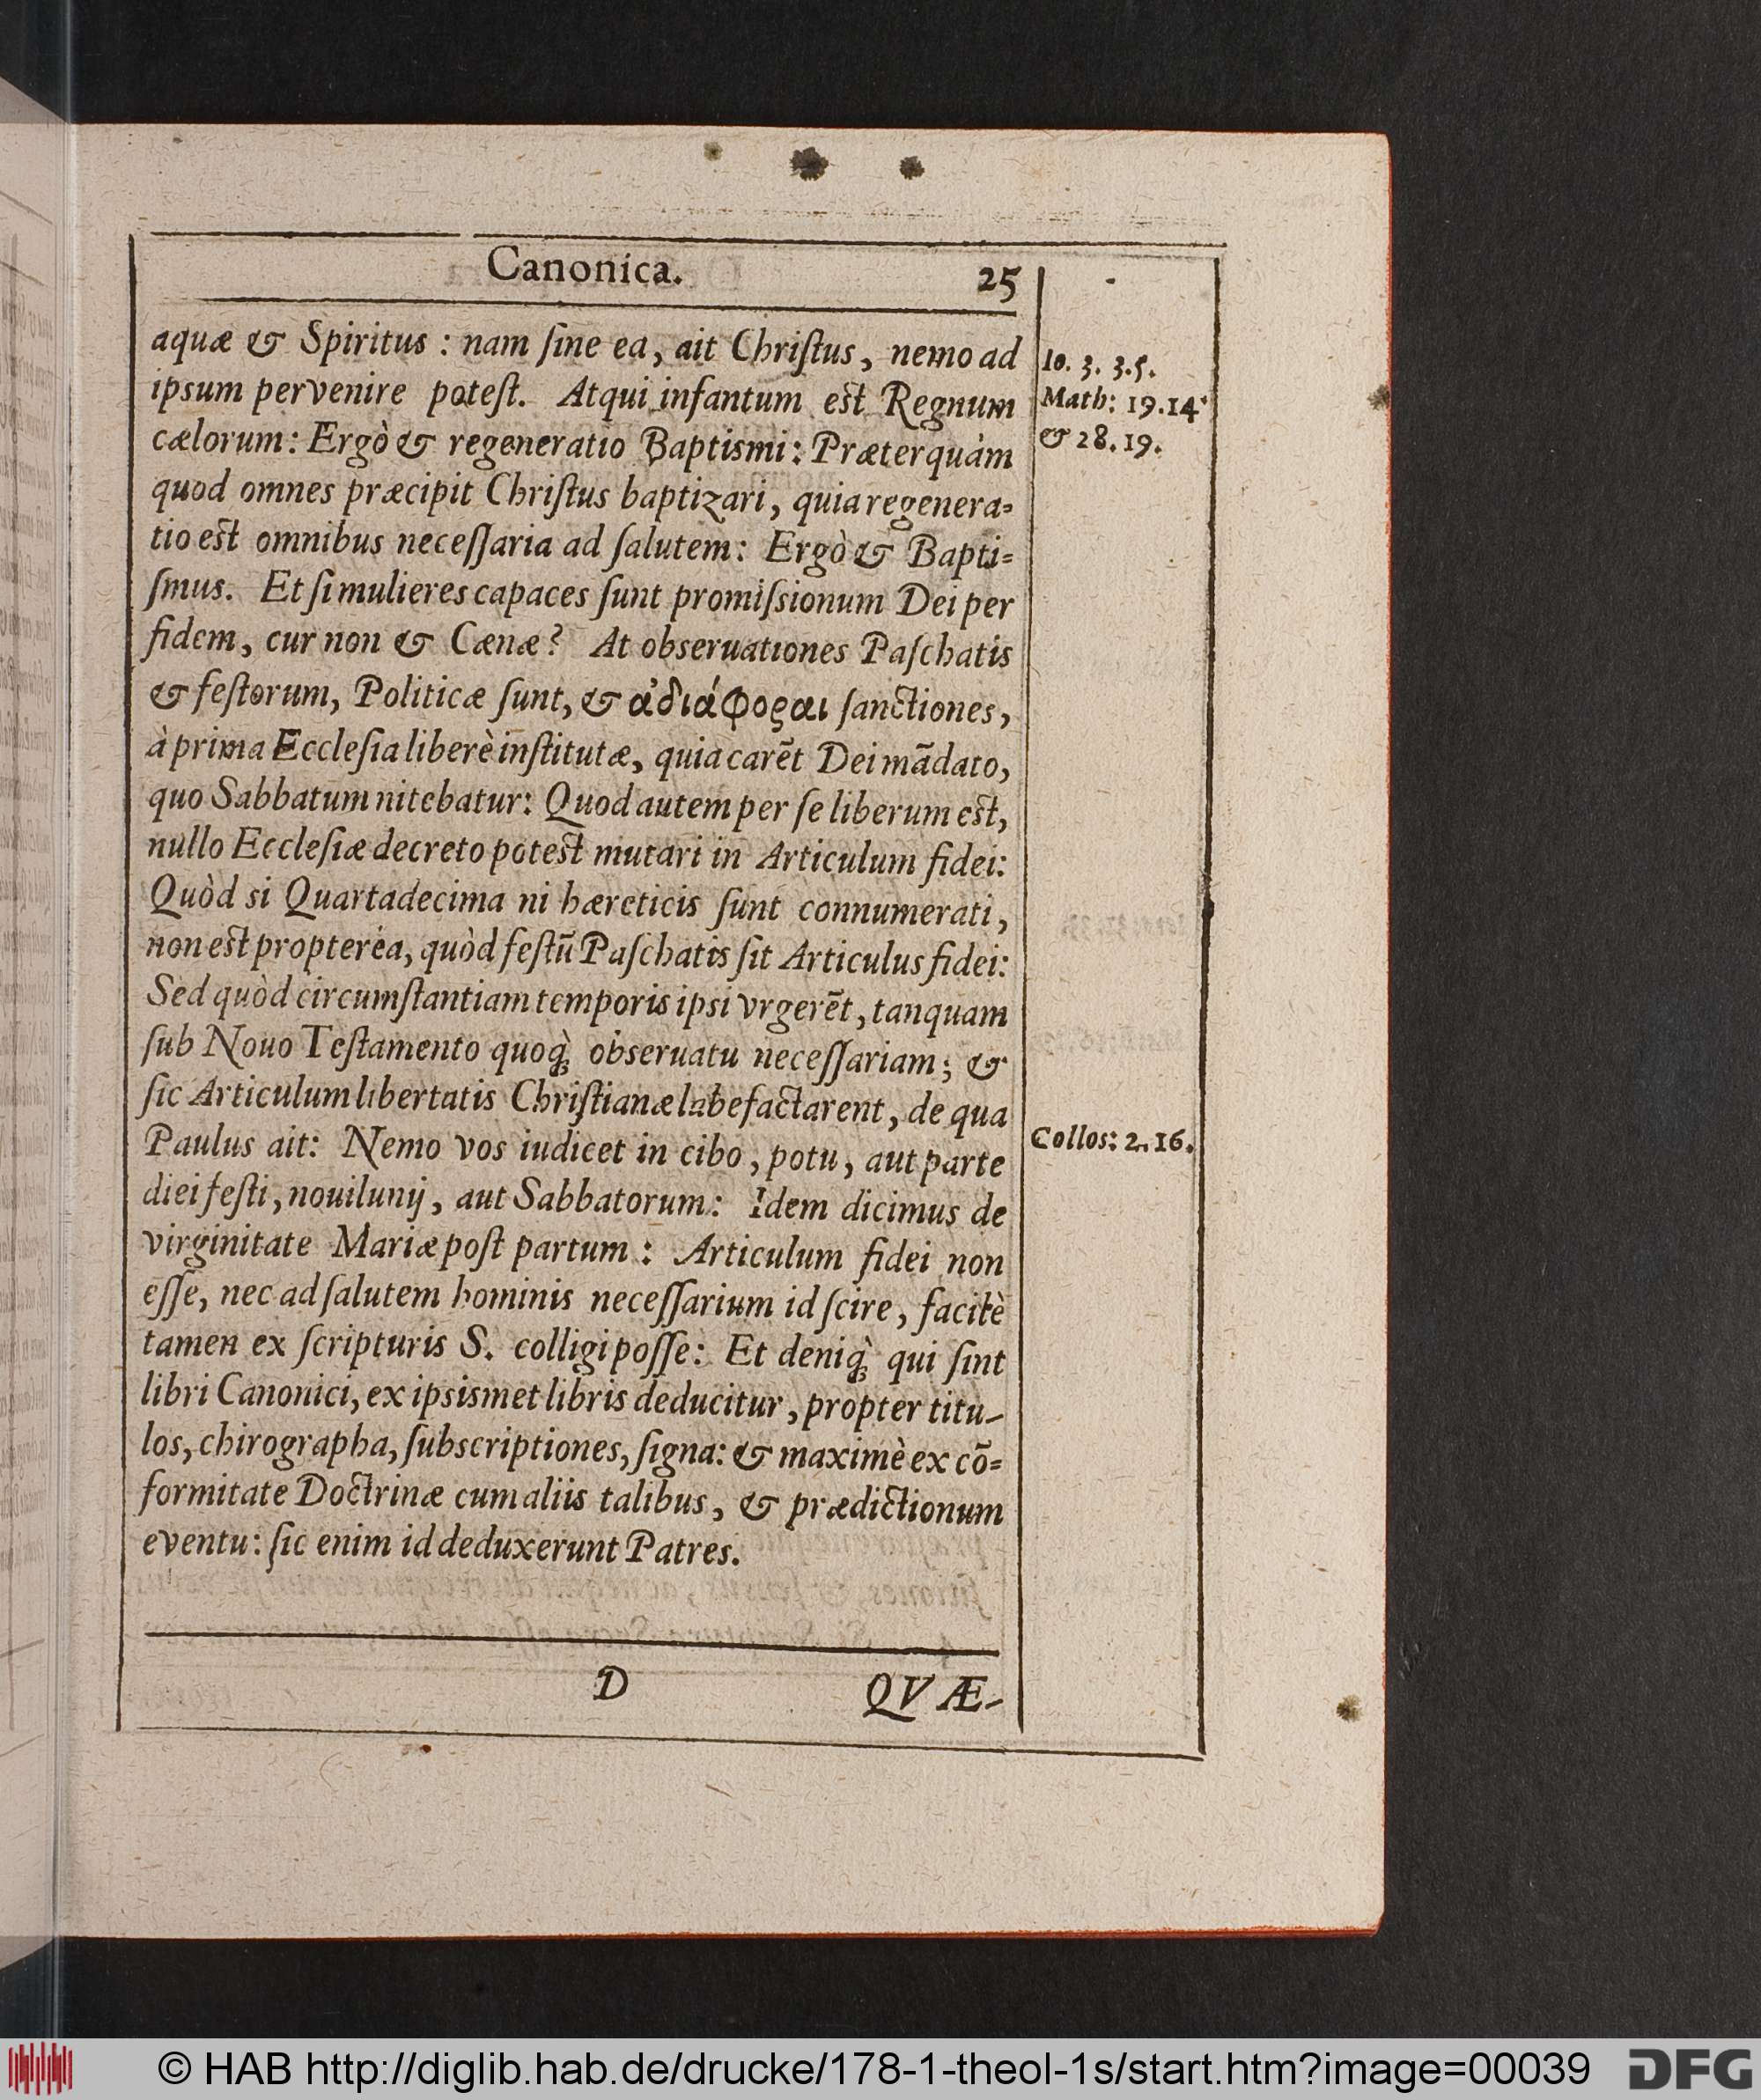 Canonica. 25
aquæ & Spiritus : nam ſine ea, ait Chriſtus, nemo ad
ipsum pervenire poteſt. Atqui infantum eſt Regnum
cælorum: Ergò & regeneratio Baptismi: Præterquàm
quod omnes præcipit Chriſtus baptizari, quia regenera-
tio eſt omnibus neceſſaria ad ſalutem: Ergò & Bapti-
ſmus. Et ſi mulieres capaces ſunt promiſsionum Dei per
fidem, cur non & Cænæ? At obseruationes Paſchatis
& feſtorum, Politicæ ſunt, & ἀδιάφοραι ſanctiones,
à prima Eccleſia liberè inſtitutæ, quia carēt Dei mādato,
quo Sabbatum nitebatur: Quod autem per ſe liberum eſt,
nullo Eccleſiæ decreto poteſt mutari in Articulum fidei:
Quòd si Quartadecima ni hæreticis ſunt connumerati,
non eſt propterea, quòd feſtū Paſchatis ſit Articulus fidei:
Sed quòd circumſtantiam temporis ipsi vrgerēt, tanquam
ſub Nouo Teſtamento quoq́; obseruatu neceſſariam; &
ſic Articulum libertatis Chriſtianæ labefactarent, de qua
Paulus ait: Nemo vos iudicet in cibo, potu, aut parte
diei feſti, nouilunij, aut Sabbatorum: Idem dicimus de
virginitate Mariæ poſt partum : Articulum fidei non
eſſe, nec ad ſalutem hominis neceſſarium id ſcire, facilè
tamen ex ſcripturis S. colligi poſſe: Et deniq́; qui ſint
libri Canonici, ex ipsismet libris deducitur, propter titu-
los, chirographa, ſubscriptiones, ſigna: & maximè ex cō-
formitate Doctrinæ cum aliis talibus, & prædictionum
eventu: ſic enim id deduxerunt Patres.
D QVÆ-
Io. 3. 3.5.
Math: 19.14.
& 28.19.
Collos: 2.16.
© HAB http://diglib.hab.de/drucke/178-1-theol-1s/start.htm?image=00039
DFG